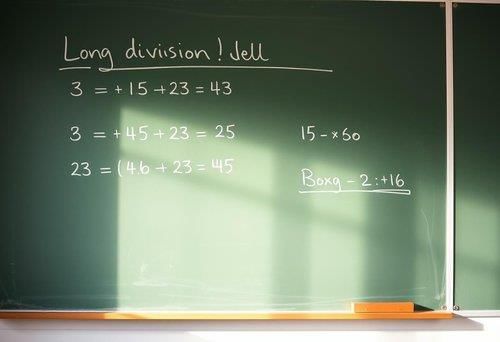 Long diviision! Jell
3 = + 15 + 23 = 43
3 = + 45 + 23 = 25
23 = (4.6 + 23 = 45
15 - × 60
Boxg - 2 : + 16